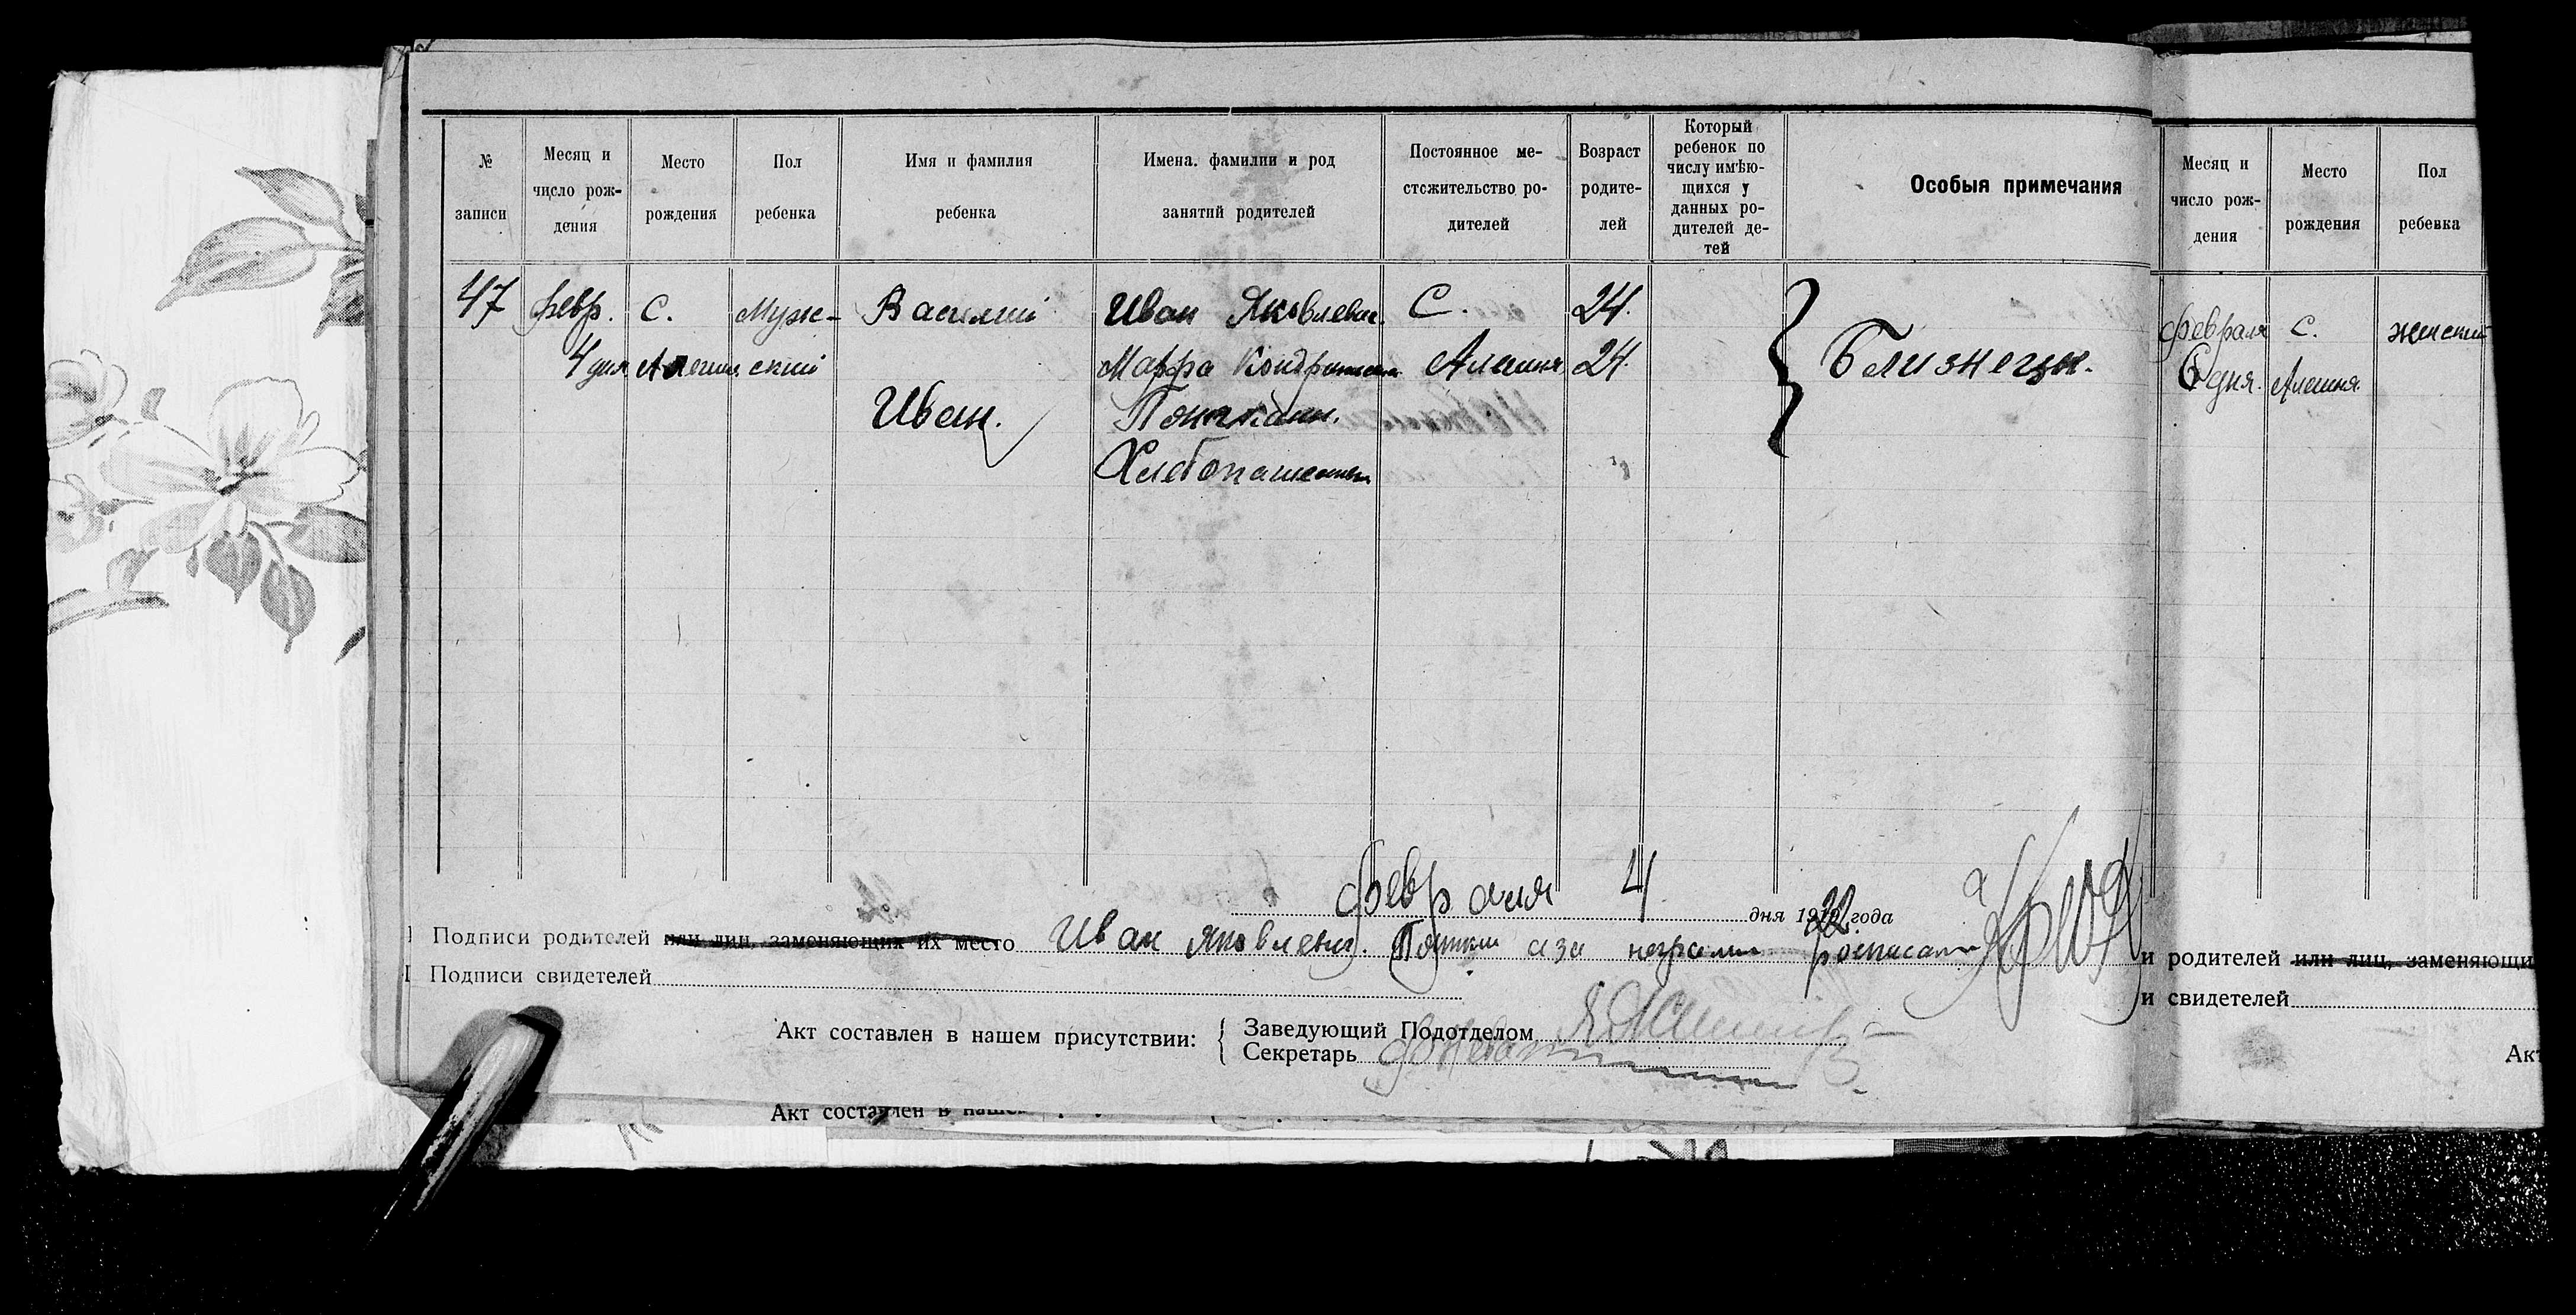 № записи
Месяц и число рождения
Место рождения
Пол ребенка
Имя и фамилия ребенка
Имена. фамилии и род занятий родителей
Постоянное местожительство родителей
Возраст родителей
Который ребенок по числу имѣющихся у данных родителей детей
Особыя примечания
47 февр. С. Муж- Василий Иван Яковлевич. С. 24.
4 дня ский Марфа Алешня 24. Близнецы.
Иван.
февраля 4 дня 1922 года
Подписи родителей или лиц, заменяющих их место Иван Яковлевич. за неграмот росписался
Подписи свидетелей
Акт составлен в нашем присутствии:
Заведующий Подотделом
Секретарь
Акт составлен в нашем
Месяц и число рождения
Место рождения
Пол ребенка
февраля С. женский
6 дня. Алешня
и родителей или лиц, заменяющи
и свидетелей
Акт